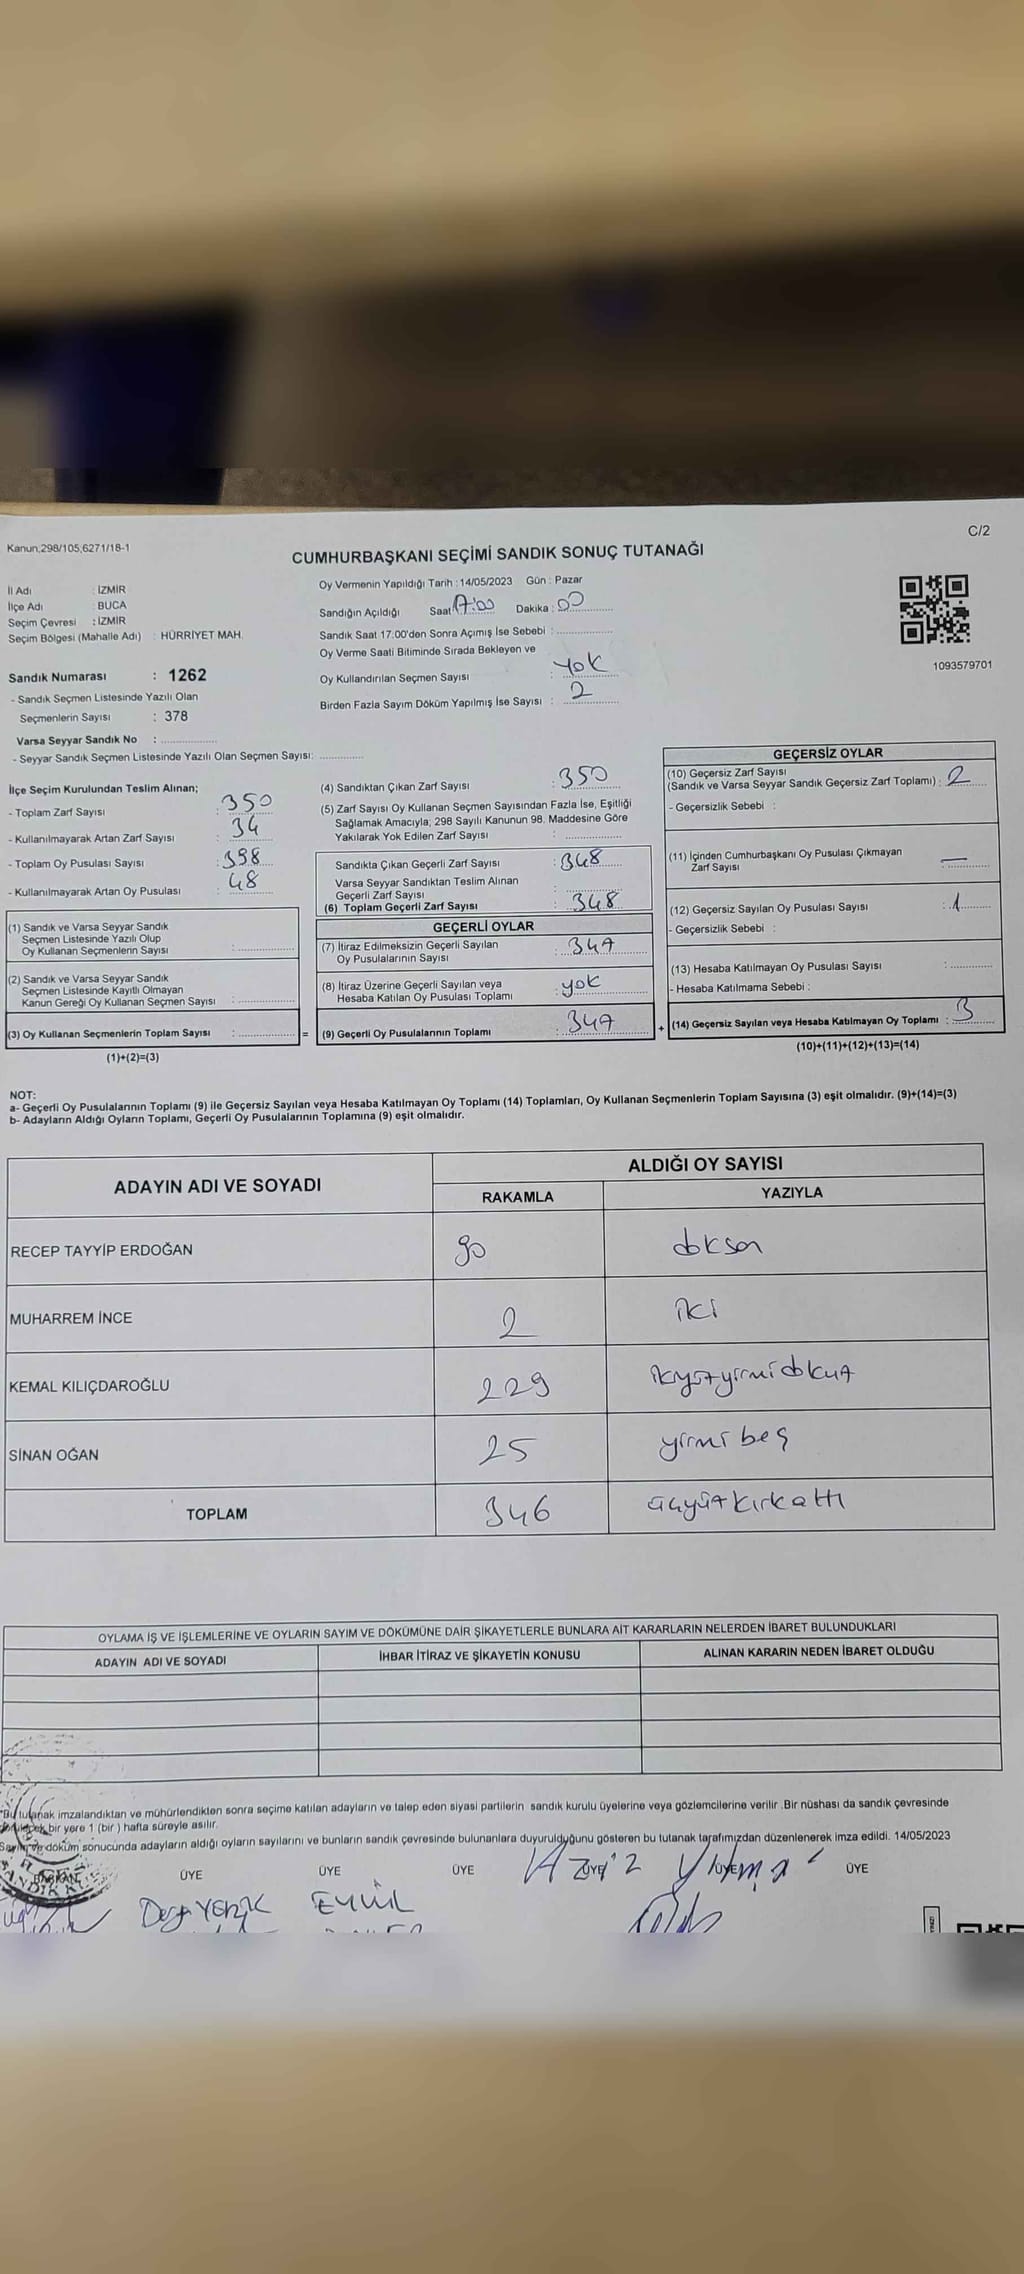 C/2
Kanun;298/105,6271/18-1
CUMHURBAŞKANI SEÇİMİ SANDIK SONUÇ TUTANAĞI
İl Adı : İZMİR
İlçe Adı : BUCA
Seçim Çevresi : İZMİR
Seçim Bölgesi (Mahalle Adı) : HÜRRİYET MAH.
Sandık Numarası : 1262
- Sandık Seçmen Listesinde Yazılı Olan
Seçmenlerin Sayısı : 378
Varsa Seyyar Sandık No : ................
- Seyyar Sandık Seçmen Listesinde Yazılı Olan Seçmen Sayısı: ............
Oy Vermenin Yapıldığı Tarih : 14/05/2023 Gün : Pazar
Sandığın Açıldığı Saat 17:00 Dakika : 00
Sandık Saat 17:00'den Sonra Açımış İse Sebebi : ................
Oy Verme Saati Bitiminde Sırada Bekleyen ve
Oy Kullandırılan Seçmen Sayısı : yok
Birden Fazla Sayım Döküm Yapılmış İse Sayısı : 2
1093579701
İlçe Seçim Kurulundan Teslim Alınan;
- Toplam Zarf Sayısı : 350
- Kullanılmayarak Artan Zarf Sayısı : 34
- Toplam Oy Pusulası Sayısı : 398
- Kullanılmayarak Artan Oy Pusulası : 48
(1) Sandık ve Varsa Seyyar Sandık
Seçmen Listesinde Yazılı Olup
Oy Kullanan Seçmenlerin Sayısı : ................
(2) Sandık ve Varsa Seyyar Sandık
Seçmen Listesinde Kayıtlı Olmayan
Kanun Gereği Oy Kullanan Seçmen Sayısı : ................
(3) Oy Kullanan Seçmenlerin Toplam Sayısı : ................ =
(1)+(2)=(3)
(4) Sandıktan Çıkan Zarf Sayısı : 350
(5) Zarf Sayısı Oy Kullanan Seçmen Sayısından Fazla İse, Eşitliği
Sağlamak Amacıyla; 298 Sayılı Kanunun 98. Maddesine Göre
Yakılarak Yok Edilen Zarf Sayısı : ................
Sandıkta Çıkan Geçerli Zarf Sayısı : 348
Varsa Seyyar Sandıktan Teslim Alınan
Geçerli Zarf Sayısı : ................
(6) Toplam Geçerli Zarf Sayısı : 348
GEÇERLİ OYLAR
(7) İtiraz Edilmeksizin Geçerli Sayılan
Oy Pusulalarının Sayısı : 347
(8) İtiraz Üzerine Geçerli Sayılan veya
Hesaba Katılan Oy Pusulası Toplamı : yok
(9) Geçerli Oy Pusulalarının Toplamı : 347 +
GEÇERSİZ OYLAR
(10) Geçersiz Zarf Sayısı
(Sandık ve Varsa Seyyar Sandık Geçersiz Zarf Toplamı) : 2
- Geçersizlik Sebebi :
(11) İçinden Cumhurbaşkanı Oy Pusulası Çıkmayan
Zarf Sayısı : —
(12) Geçersiz Sayılan Oy Pusulası Sayısı : 1
- Geçersizlik Sebebi :
(13) Hesaba Katılmayan Oy Pusulası Sayısı : ............
- Hesaba Katılmama Sebebi :
(14) Geçersiz Sayılan veya Hesaba Katılmayan Oy Toplamı : 3
(10)+(11)+(12)+(13)=(14)
NOT:
a- Geçerli Oy Pusulalarının Toplamı (9) ile Geçersiz Sayılan veya Hesaba Katılmayan Oy Toplamı (14) Toplamları, Oy Kullanan Seçmenlerin Toplam Sayısına (3) eşit olmalıdır. (9)+(14)=(3)
b- Adayların Aldığı Oyların Toplamı, Geçerli Oy Pusulalarının Toplamına (9) eşit olmalıdır.
ADAYIN ADI VE SOYADI
ALDIĞI OY SAYISI
RAKAMLA YAZIYLA
RECEP TAYYİP ERDOĞAN 90 doksan
MUHARREM İNCE 2 iki
KEMAL KILIÇDAROĞLU 229 ikiyüzyirmidokuz
SİNAN OĞAN 25 yirmi beş
TOPLAM 346 üçyüzkırkaltı
OYLAMA İŞ VE İŞLEMLERİNE VE OYLARIN SAYIM VE DÖKÜMÜNE DAİR ŞİKAYETLERLE BUNLARA AİT KARARLARIN NELERDEN İBARET BULUNDUKLARI
ADAYIN ADI VE SOYADI İHBAR İTİRAZ VE ŞİKAYETİN KONUSU ALINAN KARARIN NEDEN İBARET OLDUĞU
*Bu tutanak imzalandıktan ve mühürlendikten sonra seçime katılan adayların ve talep eden siyasi partilerin sandık kurulu üyelerine veya gözlemcilerine verilir .Bir nüshası da sandık çevresinde
bir yere 1 (bir ) hafta süreyle asılır.
Sayım ve döküm sonucunda adayların aldığı oyların sayılarını ve bunların sandık çevresinde bulunanlara duyurulduğunu gösteren bu tutanak tarafımızdan düzenlenerek imza edildi. 14/05/2023
BAŞKAN ÜYE ÜYE ÜYE ÜYE ÜYE ÜYE
EYLÜL